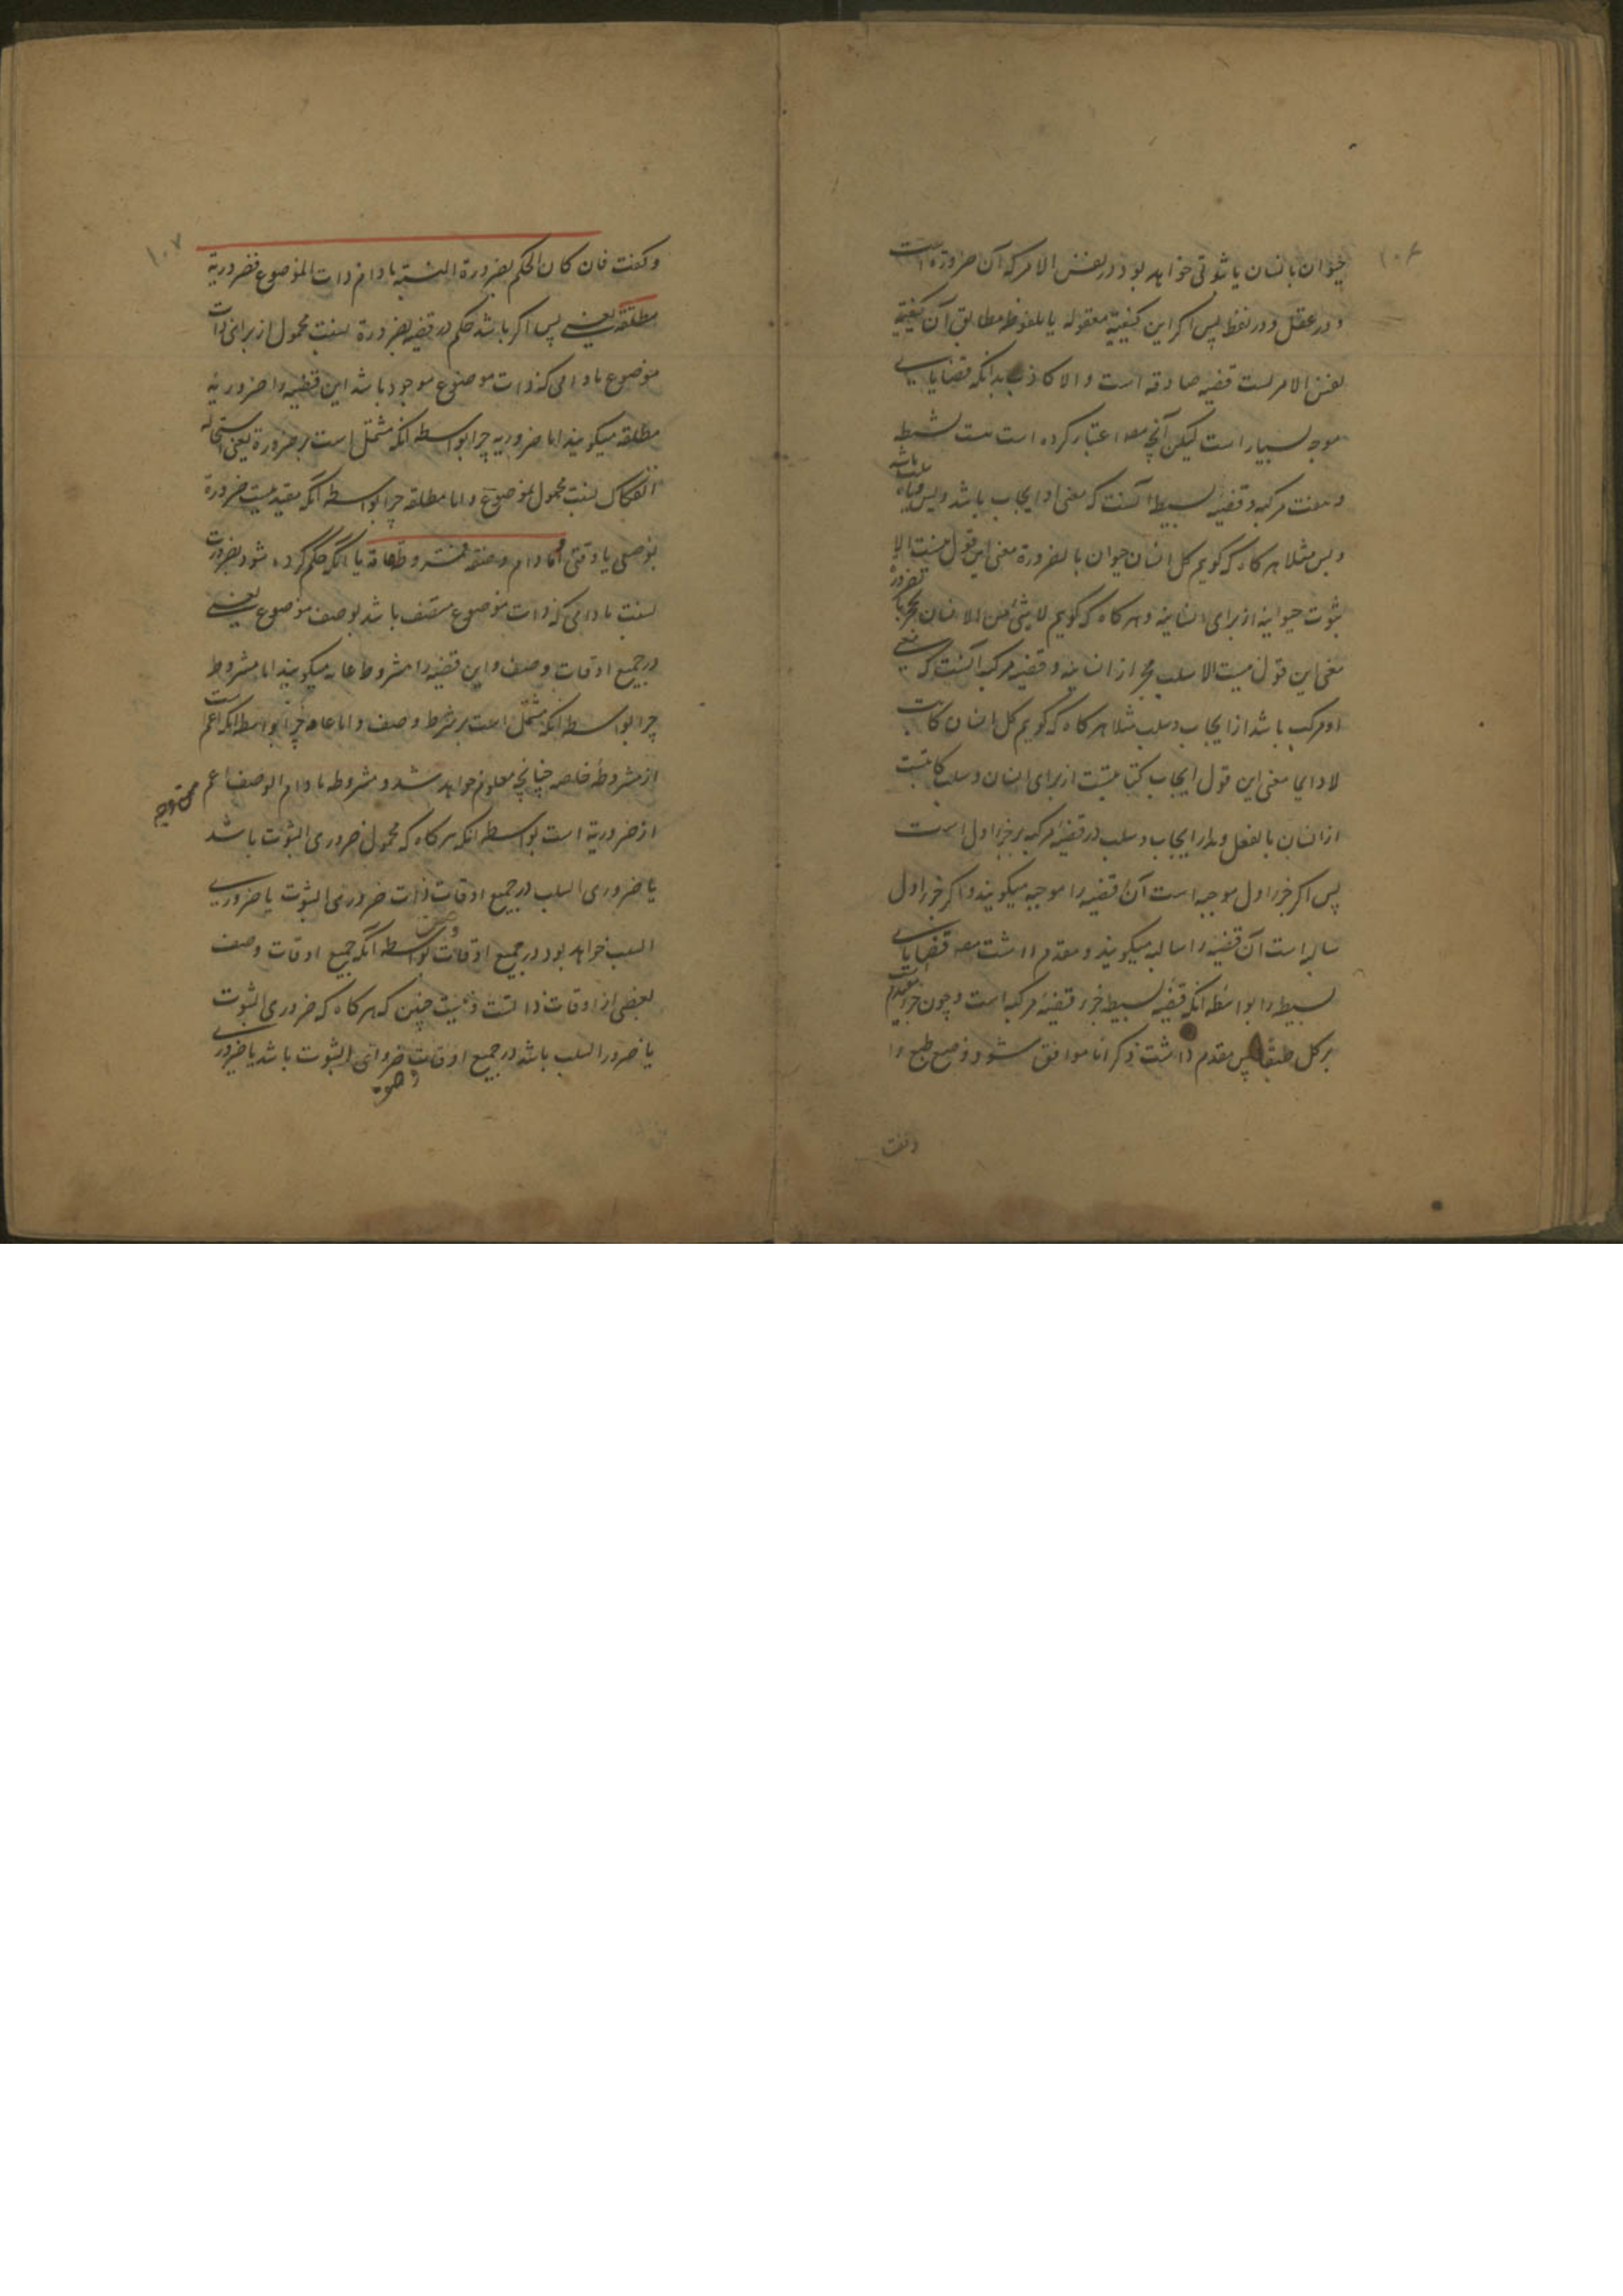 ۱۰۶
حیوان بانسان یا ثبوتی خواهد بود در نفس الامر که آن ضرورة است
و در عقل و در لفظ پس اگر این کیفیة معقوله یا ملفوظه مطابق آن کیفیة
نفس الامر است قضیه صادقه است والا کاذبه بدانکه قضایای
موجهه بسیار است لیکن آنچه مص اعتبار کرده است بسیط
و مرکبه و قضیۀ بسیط آنست که معنی او ایجاب باشد و بس یا سلب باشد
و بس مثلا هر کاه که گویم کل انسان حیوان بالضرورة معنی این قول نیست الا
ثبوت حیوانیة از برای انسانیة و هر کاه که گویم لا شئ من الانسان بحجر بالضرورة
معنی این قول نیست الا سلب حجر از انسانیة و قضیۀ مرکبه آنست که معنی
او مرکب باشد از ایجاب و سلب مثلا هر کاه که گویم کل انسان کاتب
لا دایما معنی این قول ایجاب کتابتست از برای انسان و سلب کتابت
از انسان بالفعل و مدار ایجاب و سلب در قضیۀ مرکبه بر جزء اول است
پس اگر جزء اول موجبه است آن قضیه را موجبه میگویند و اگر جزء اول
سالبه است آن قضیه را سالبه میگویند و مقدم داشت مص قضایای
بسیطه را بواسطه انکه قضیۀ بسیطه جزء قضیۀ مرکبه است و چون جزء مقدم است
بر کل طبعا پس مقدم داشت ذکرا تا موافق شود وضع طبع را
و گفت
۱۰۷
و گفت فان کان الحکم بضرورة النسبة مادام ذات الموضوع فضروریة
مطلقة یعنی پس اگر باشد حکم در قضیه بضرورة نسبت محمول از برای ذات
موضوع مادامی که ذات موضوع موجود باشد این قضیه را ضروریه
مطلقه میگویند اما ضروریه چرا بواسطه انکه مشتمل است بر ضرورة یعنی استحاله
انفکاک نسبت محمول بموضوع و اما مطلقه چرا بواسطه انکه مقید نیست ضرورة
بوصفی یا وقتی او مادام وصفه فمشروطة عامة یا انکه حکم کرده شود بضرورت
نسبت مادامی که ذات موضوع متصف باشد بوصف موضوع یعنی
در جمیع اوقات وصف و این قضیه را مشروطه عامه میگویند اما مشروط
چرا بواسطه انکه مشتمل است بر شرط وصف و اما عامه چرا بواسطه انکه اعم است
از مشروطۀ خاصه چنانچه معلوم خواهد شد و مشروطه مادام الوصف اعم
از ضروریة است بواسطه انکه هر کاه که محمول ضروری الثبوت باشد
یا ضروری السلب در جمیع اوقات ذات ضروری الثبوت یا ضروری
السلب خواهد بود در جمیع اوقات وصف بواسطه انکه جمیع اوقات وصف
بعضی از اوقات ذاتست و نیست چنین که هر کاه که ضروری الثبوت
یا ضرور السلب باشد در جمیع اوقات وصف ضروری الثبوت باشد یا ضروری